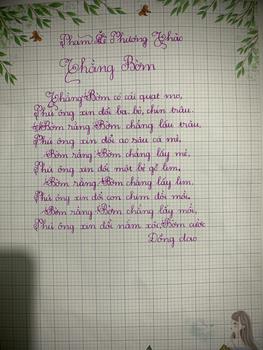 Phạm Lê Phương Thảo
Thằng Bờm
Thằng Bờm có cái quạt mo,
Phú ông xin đổi ba bò, chín trâu.
Bờm rằng: Bờm chẳng lấu trâu,
Phú ông xin đổi ao sâu cá mè,
Bờm rằng: Bờm chẳng lấy mè,
Phú ông xin đổi một bè gỗ lim,
Bờm rằng: Bờm chẳng lấy lim,
Phú ông xin đổi con chim đồi mồi,
Bờm rằng: Bờm chẳng lấy mồi,
Phú ông xin đổi nắm xôi, Bờm cười
Đồng dao